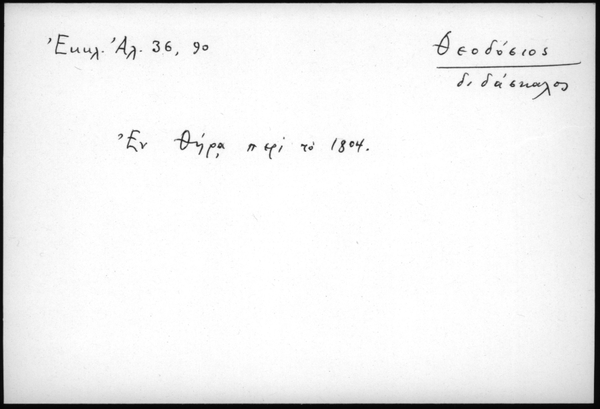 Ἐκκλ. Ἀλ. 36, 90
Θεοδόσιος
διδάσκαλος
Ἐν Θήρᾳ περὶ τὸ 1804.